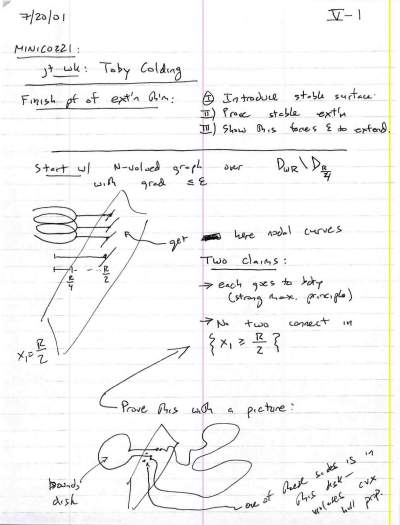 7/20/01
V-1
MINICOZZI:
jt wk: Toby Colding
Finish pf of ext'n th'm:
I) Introduce stable surface.
II) Prove stable ext'n
III) Show this forces Σ to extend.
Start w/ N-valued graph over D_{ωR} \ D_{R/4}
with grad ≤ ε
R
get here nodal curves
R/4
R/2
Two claims:
→ each goes to bdry
(strong max. principle)
→ No two connect in
{ x₁ ≥ R/2 }
x₁ = R/2
Prove this with a picture:
bounds
disk
one of these sides is in
this disk –
violates cvx
hull prop.